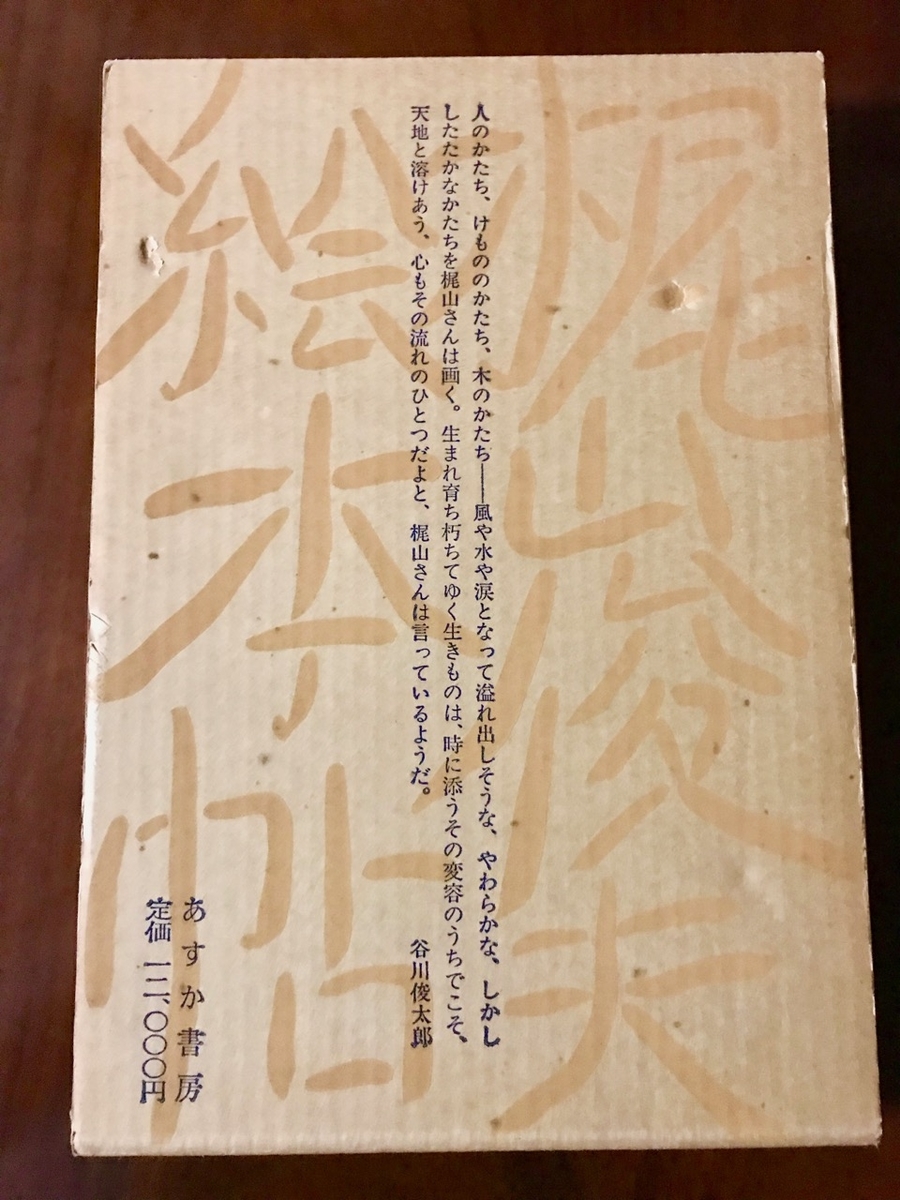 梶山俊夫
絵本帖
人のかたち、けもののかたち、木のかたち——風や水や涙となって溢れ出しそうな、やわらかな、しかし
したたかなかたちを梶山さんは画く。生まれ育ち朽ちてゆく生きものは、時に添うその変容のうちでこそ、
天地と溶けあう、心もその流れのひとつだよと、梶山さんは言っているようだ。
谷川俊太郎
あすか書房
定価 一二、〇〇〇円